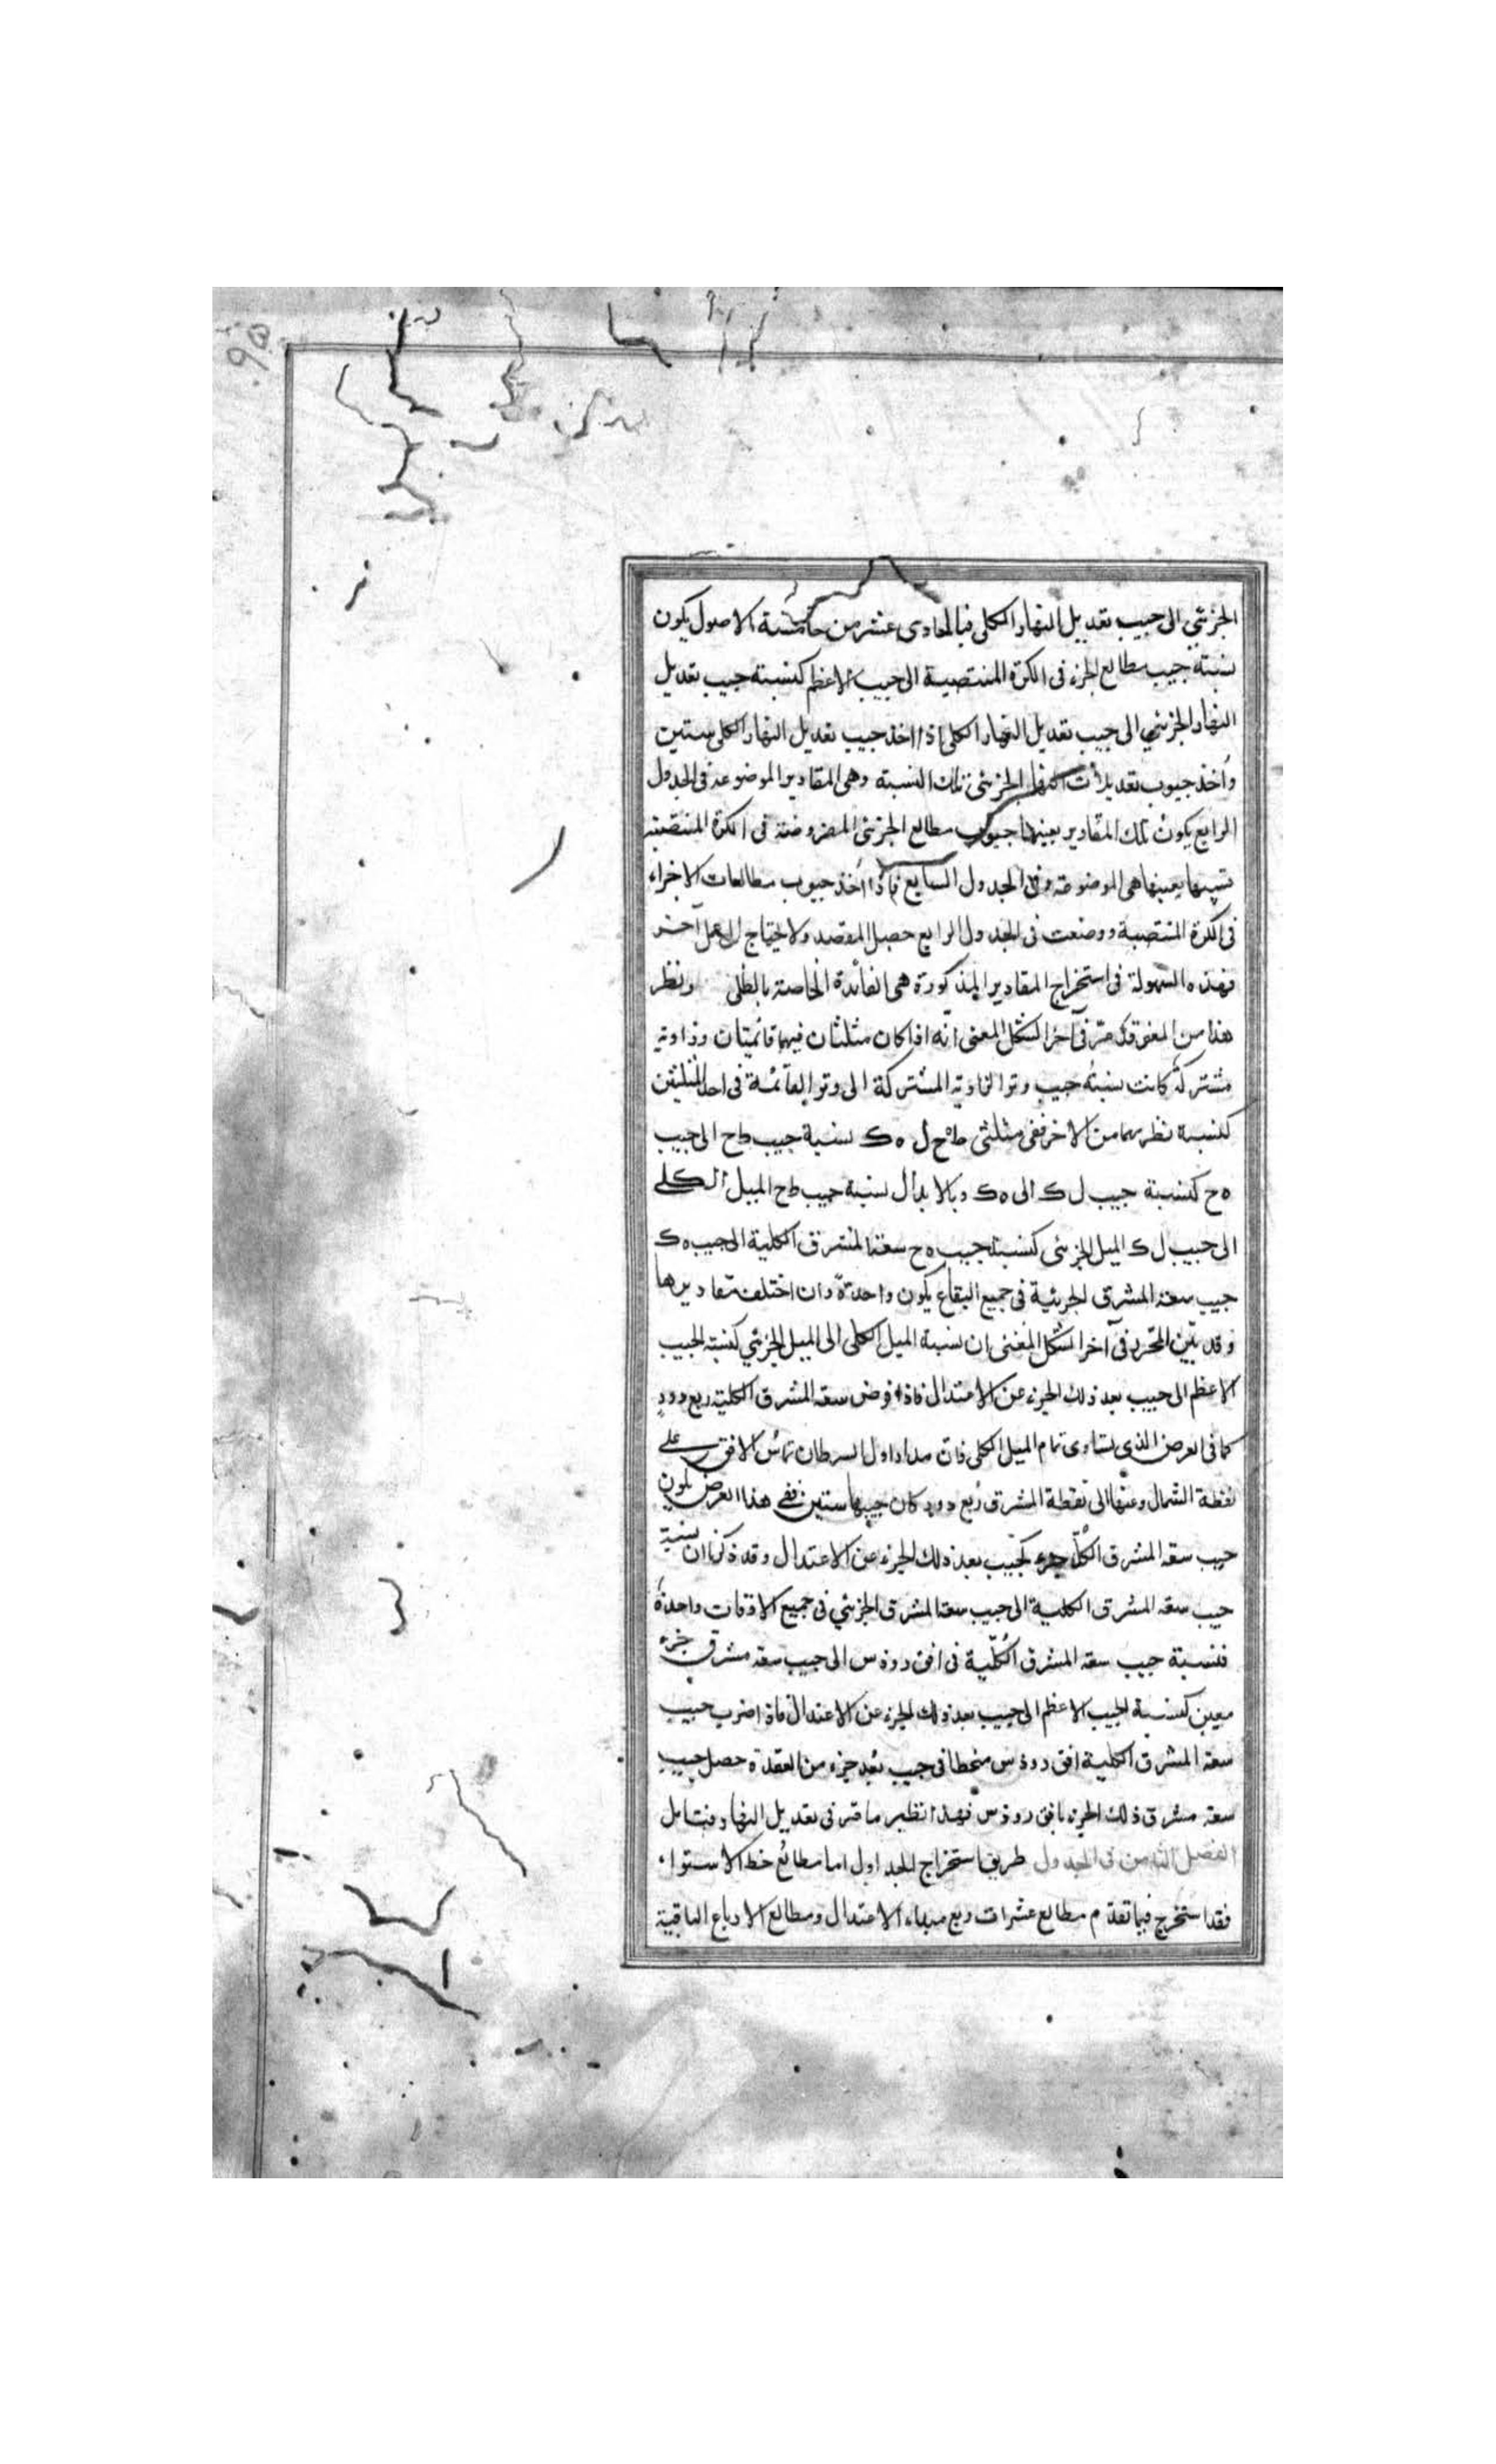 الجزئي الى جيب تعديل النهار الكلى فبالحادى عشر من خامسة الاصول يكون
نسبته جيب مطالع الجزء فى الكرة المنتصبة الى جيب الاعظم كنسبته جيب تعديل
النهار الجزئي الى جيب تعديل النهار الكلى اذا اخذ جيب تعديل النهار الكلى ستين
واخذ جيوب تعديلات النهار الجزئى تلك النسبة وهى المقادير الموضوعة فى الجدول
الرابع يكون تلك المقادير بعينها جيوب مطالع الجزئى المفروضة فى الكرة المنتصبة
بعينها هى الموضوعة فى الجدول السابع فاذا اخذ جيوب مطالعات الاجزاء
فى الكرة المنتصبة ووضعت فى الجدول الرابع حصل المقصد ولا يحتاج الى عمل آخر
فهذه السهولة فى استخراج المقادير المذكورة هى الفائدة الخاصة بالظلى ونظر
هذا من المغنى قد مرّ فى آخر الشكل المغنى انّه اذا كان مثلثان فيهما قائمتان وزاوية
مشتركة كانت نسبة جيب وتر الزاوية المشتركة الى وتر القائمة فى احد المثلثين
كنسبة نظيرهما من الاخر ففى مثلثى ط ه ح ل ه ك نسبة جيب ط ح الى جيب
ه ح كنسبة جيب ل ك الى ه ك وبالابدال نسبة جيب ط ح الميل الكلى
الى جيب ل ك الميل الجزئى كنسبة جيب ه ح سعة المشرق الكلية الى جيب ه ك
جيب سعة المشرق الجزئية فى جميع البقاع يكون واحدة وان اختلف مقاديرها
وقد بيّن المحرر فى آخر الشكل المغنى ان نسبة الميل الكلى الى الميل الجزئي كنسبة الجيب
الاعظم الى جيب بعد ذلك الجزء عن الاعتدال فاذا فرض سعة المشرق الكلية ربع دور
كما فى العرض الذى يساوى تمام الميل الكلى فان مدار اول السرطان تماس الافق على
نقطة الشمال وعنها الى نقطة المشرق ربع دور كان جيبها ستين ففى هذا العرض يكون
جيب سعة المشرق الكلّ جزء كجيب بعد ذلك الجزء عن الاعتدال وقد ذكرنا ان نسبة
جيب سعة المشرق الكلية الى جيب سعة المشرق الجزئي فى جميع الافقات واحدة
فنسبة جيب سعة المشرق الكلّية فى افق رودس الى جيب سعة مشرق جزء
معين كنسبة الجيب الاعظم الى جيب بعد ذلك الجزء عن الاعتدال فاذا ضرب جيب
سعة المشرق الكلية افق رودس منحطا فى جيب بعد جزء من العقدة حصل جيب
سعة مشرق ذلك الجزء بافق رودس فهذا نظير ما مرّ فى تعديل النهار فتامل
الفصل الثامن فى الجدول طريق استخراج الجداول اما مطالع خط الاستواء
فقد استخرج فيما تقدّم مطالع عشرات ربع مبداء الاعتدال ومطالع الارباع الباقية